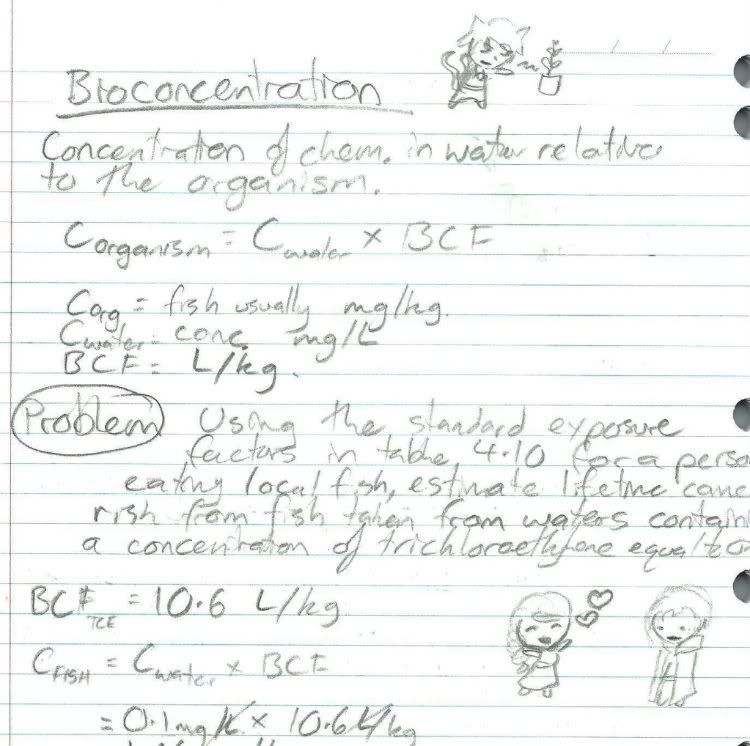 Bioconcentration
Concentration of chem. in water relative
to the organism.
Corganism = Cwater × BCF
Corg = fish usually mg/kg.
Cwater = conc. mg/L
BCF = L/kg.
Problem Using the standard exposure
factors in table 4.10 for a perso
eating local fish, estimate lifetime canc
risk from fish taken from waters contain
a concentration of trichloroethylene equal to
BCF TCE = 10.6 L/kg
CFISH = Cwater × BCF
= 0.1 mg/L × 10.6 L/kg